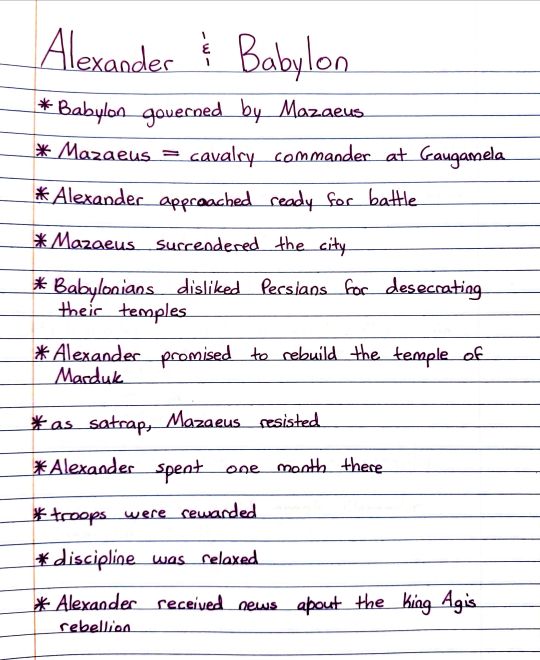 Alexander & Babylon
* Babylon governed by Mazaeus
* Mazaeus = cavalry commander at Gaugamela
* Alexander approached ready for battle
* Mazaeus surrendered the city
* Babylonians disliked Persians for desecrating
their temples
* Alexander promised to rebuild the temple of
Marduk
* as satrap, Mazaeus resisted
* Alexander spent one month there
* troops were rewarded
* discipline was relaxed
* Alexander received news about the King Agis
rebellion